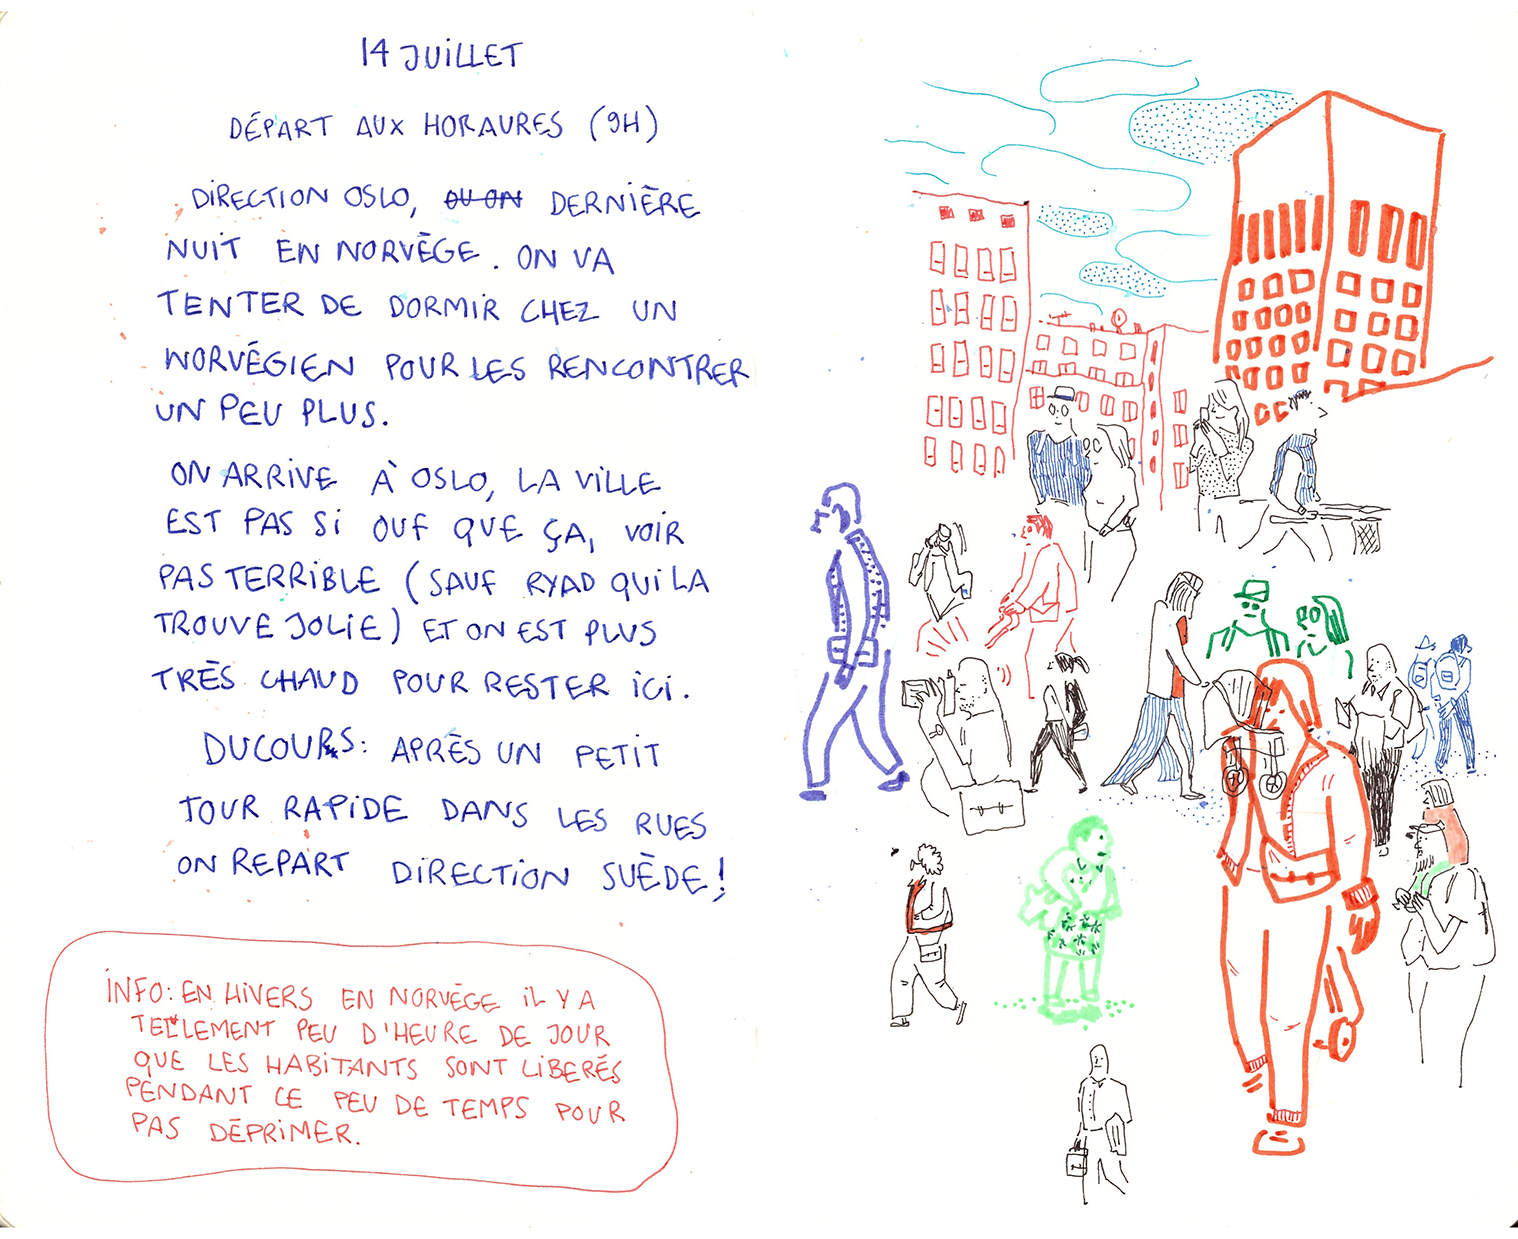 14 JUILLET
DÉPART AUX HORAURES (9H)
DIRECTION OSLO, OU ON DERNIÈRE
NUIT EN NORVÈGE. ON VA
TENTER DE DORMIR CHEZ UN
NORVÉGIEN POUR LES RENCONTRER
UN PEU PLUS.
ON ARRIVE À OSLO, LA VILLE
EST PAS SI OUF QUE ÇA, VOIR
PAS TERRIBLE (SAUF RYAD QUI LA
TROUVE JOLIE) ET ON EST PLUS
TRÈS CHAUD POUR RESTER ICI.
DU COURS: APRÈS UN PETIT
TOUR RAPIDE DANS LES RUES
ON REPART DIRECTION SUÈDE!
INFO: EN HIVERS EN NORVÈGE IL Y A
TELLEMENT PEU D'HEURE DE JOUR
QUE LES HABITANTS SONT LIBERÉS
PENDANT CE PEU DE TEMPS POUR
PAS DÉPRIMER.